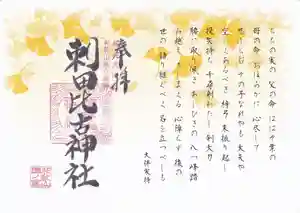 ちちの実の 父の命 ははそ葉の
母の命 おほろかに 心尽して
思ふらむ その子なれやも 大夫や
空しくあるべき 梓弓 末振り起し
投矢持ち 千尋射わたし 剣大刀
腰に取り佩き あしひきの 八つ峰踏
み越え さしまくる 心障らず 後の
世の 語り継ぐべく 名を立つべしも
大伴家持
奉拝
刺田比古神社